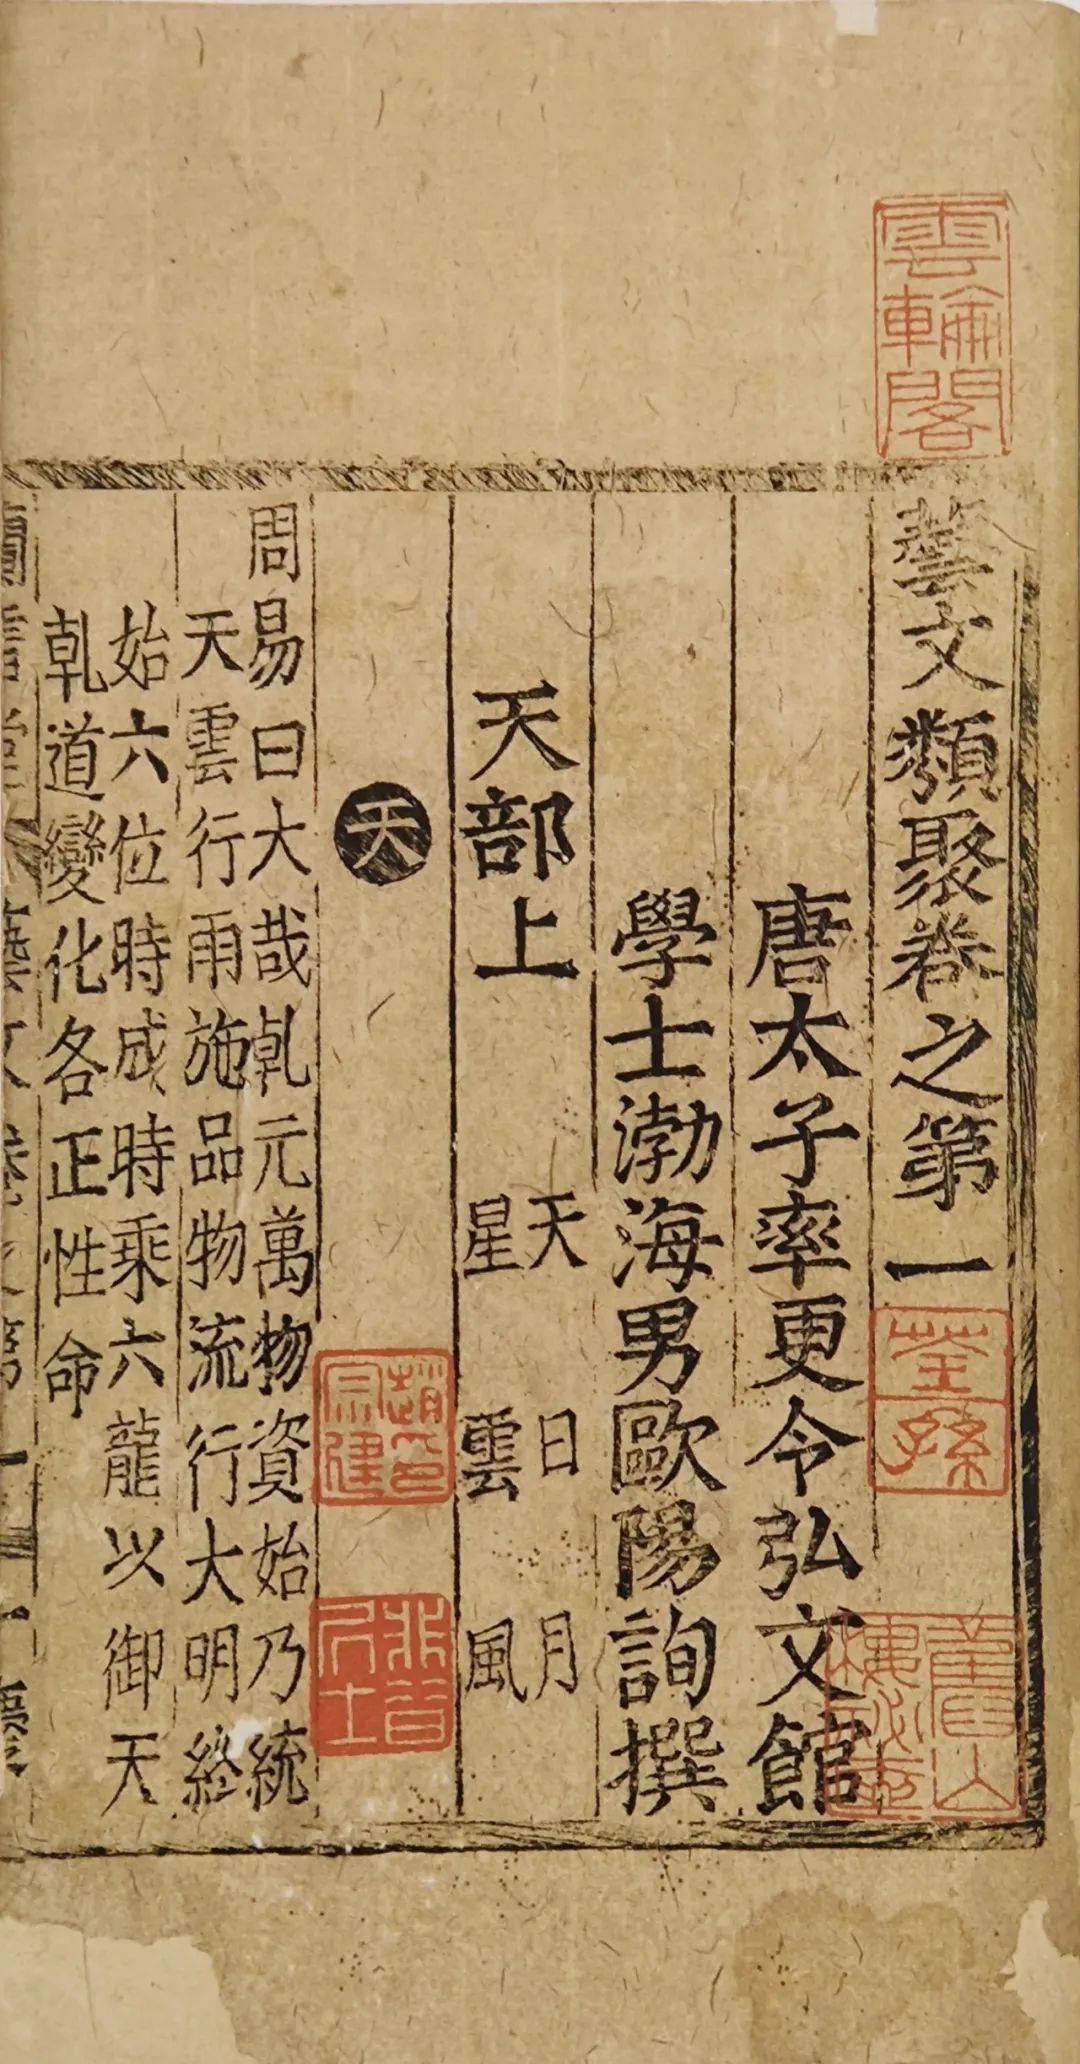 藝文類聚卷之第一
唐太子率更令弘文館
學士渤海男歐陽詢撰
天部上 天 日 月
星 雲 風
天
周易曰大哉乹元萬物資始乃統
天雲行雨施品物流行大明終
始六位時成時乘六龍以御天
乹道變化各正性命
雲輪閣
荃孫
趙宗建印
非昔居士